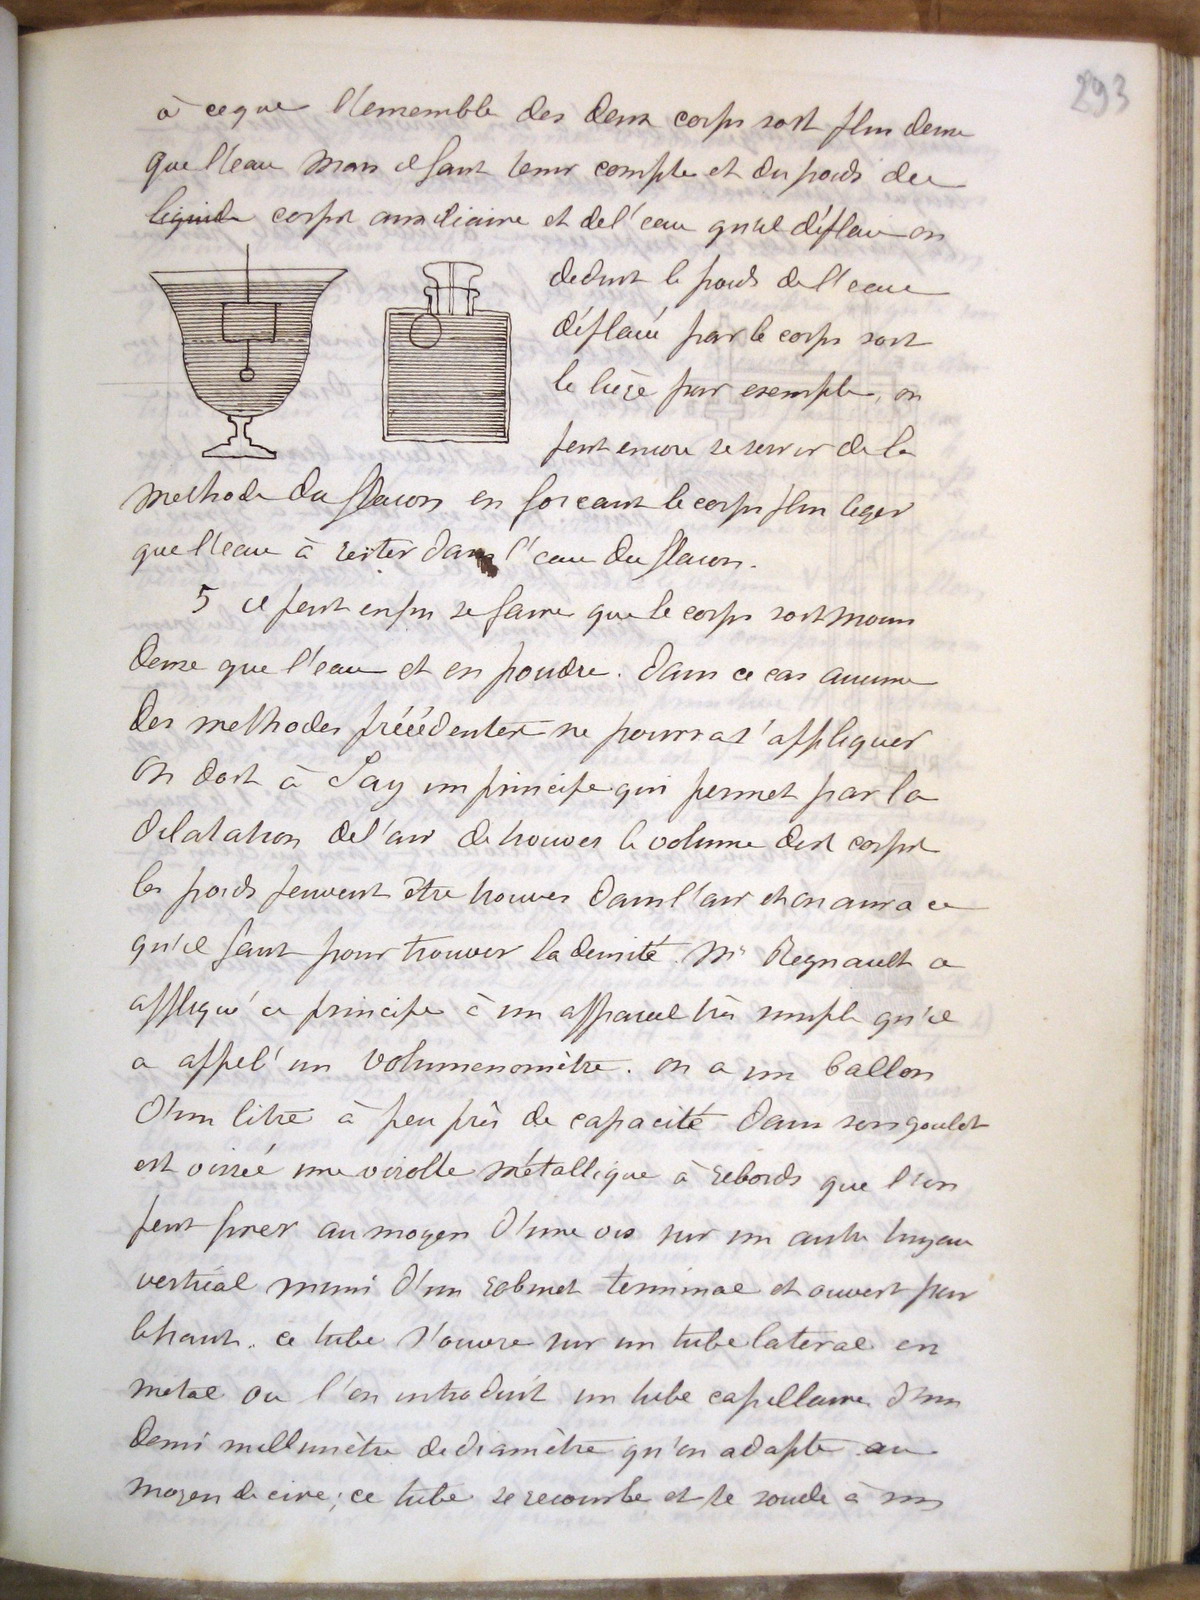 293
à ce que l'ensemble des deux corps soit plus dense
que l'eau mais il faut tenir compte et du poids du
liquide corps auxiliaire et de l'eau qu'il déplace on
deduit le poids de l'eau
déplacé par le corps soit
le liège par exemple, on
peut encore se servir de la
methode du flacon en forcant le corps plus leger
que l'eau à rester dans l'eau du flacon.
5 il peut enfin se faire que le corps soit moins
dense que l'eau et en poudre. Dans ce cas aucune
des methodes précédentes ne pourra s'appliquer
On doit à Say un principe qui permet par la
dilatation de l'air de trouver le volume des corps
les poids peuvent être trouves dans l'air et on aura ce
qu'il faut pour trouver la densité. Mr Regnault a
appliqué ce principe à un appareil très simple qu'il
a appel' un volumenomètre. on a un ballon
d'un litre à peu près de capacité dans son goulot
est vissée une virolle métallique à rebords que l'on
peut fixer au moyen d'une vis sur un autre tuyau
vertical muni d'un robinet terminal et ouvert par
le haut. ce tube s'ouvre sur un tube lateral en
metal ou l'on introduit un tube capillaire d'un
demi millimètre de diamètre qu'on adapte au
moyen de cire; ce tube se recourbe et se soude à un